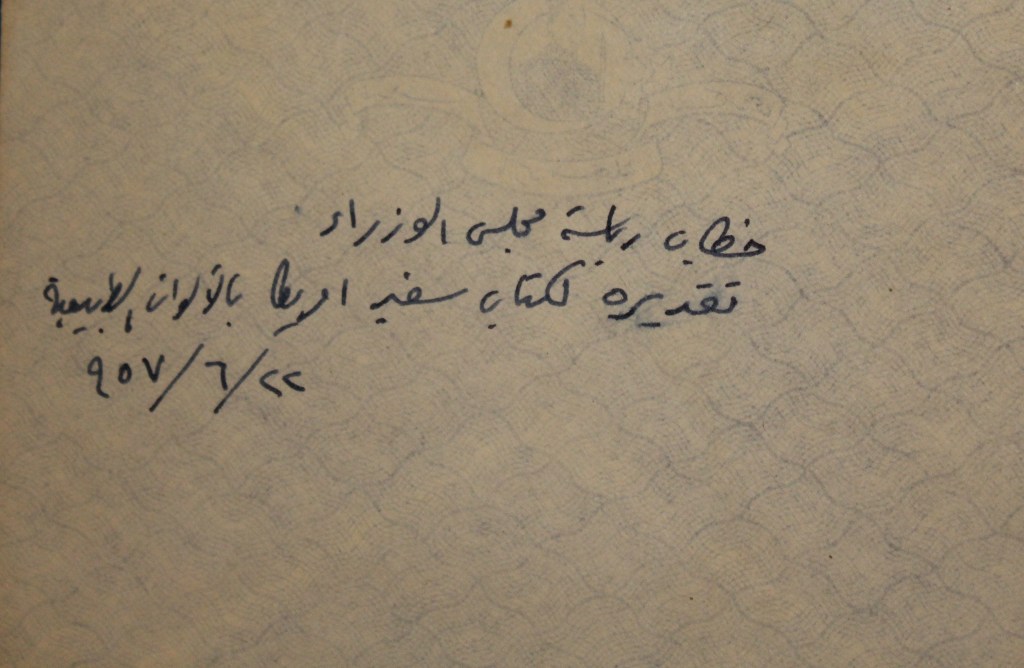 خطاب رياسة مجلس الوزراء
تقديره لكتاب سفير افريقيا بالألوان الطبيعية
٢٢/٦/٩٥٧